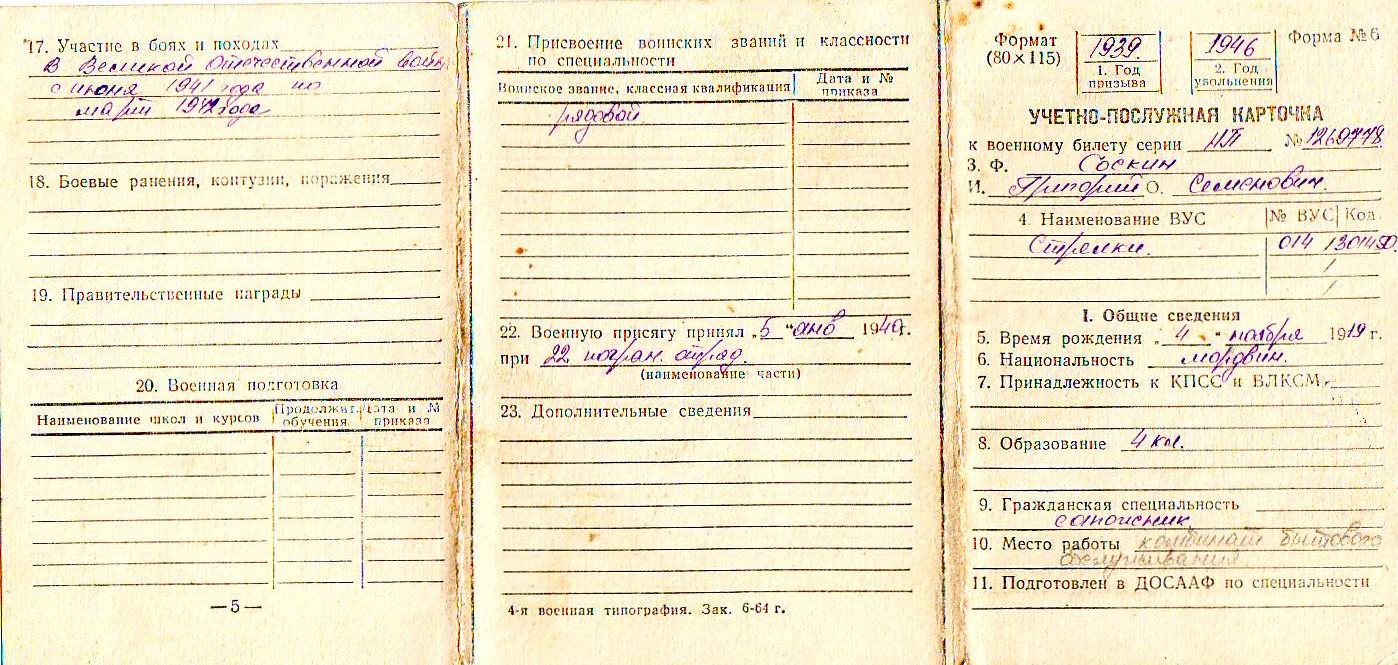 17. Участие в боях и походах
В Великой Отечественной войне
с июня 1941 года по
март 1942 года
18. Боевые ранения, контузии, поражения
19. Правительственные награды
20. Военная подготовка
Наименование школ и курсов | Продолжит. обучения | Дата и № приказа
—5—
21. Присвоение воинских званий и классности
по специальности
Воинское звание, классная квалификация | Дата и № приказа
рядовой
22. Военную присягу принял „5 “ янв 1940г.
при 22 погран. отряд.
(наименование части)
23. Дополнительные сведения
4-я военная типография. Зак. 6-64 г.
Формат
(80×115)
1939.
1. Год
призыва
1946
2. Год
увольнения
Форма № 6
УЧЕТНО-ПОСЛУЖНАЯ КАРТОЧКА
к военному билету серии НП № 1269778
3. Ф. Соскин
И. Григорий О. Семенович.
4. Наименование ВУС | № ВУС | Код
Стрелки. 014
I. Общие сведения
5. Время рождения „ 4 “ ноября 1919 г.
6. Национальность мордвин.
7. Принадлежность к КПСС и ВЛКСМ
8. Образование 4 кл.
9. Гражданская специальность
сапожник
10. Место работы комбинат бытового
обслуживания
11. Подготовлен в ДОСААФ по специальности